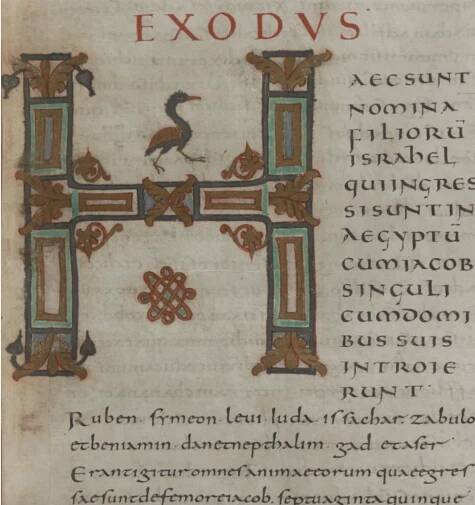 EXODVS
HAEC SUNT
NOMINA
FILIORŪ
ISRAHEL
QUI INGRES
SI SUNT IN
AEGYPTŪ
CUM IACOB
SINGULI
CUM DOMI
BUS SUIS
INTROIE
RUNT·
Ruben· symeon· leui· iuda· issachar· zabulo
et beniamin dan et nepthalim· gad et aser
Erant igitur omnes animae eorum quae egres
sae sunt de femore iacob· septuaginta quinque